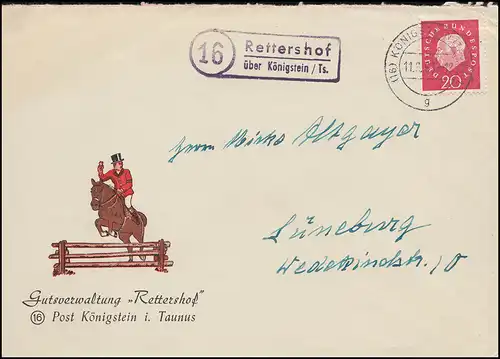 16
Rettershof
über Königstein / Ts.
(16) KÖNIG
11.
g
DEUTSCHE BUNDESPOST
20
Herrn Mirko Altgayer
Lüneburg
Wedekindstr. 10
Gutsverwaltung „Rettershof"
(16) Post Königstein i. Taunus